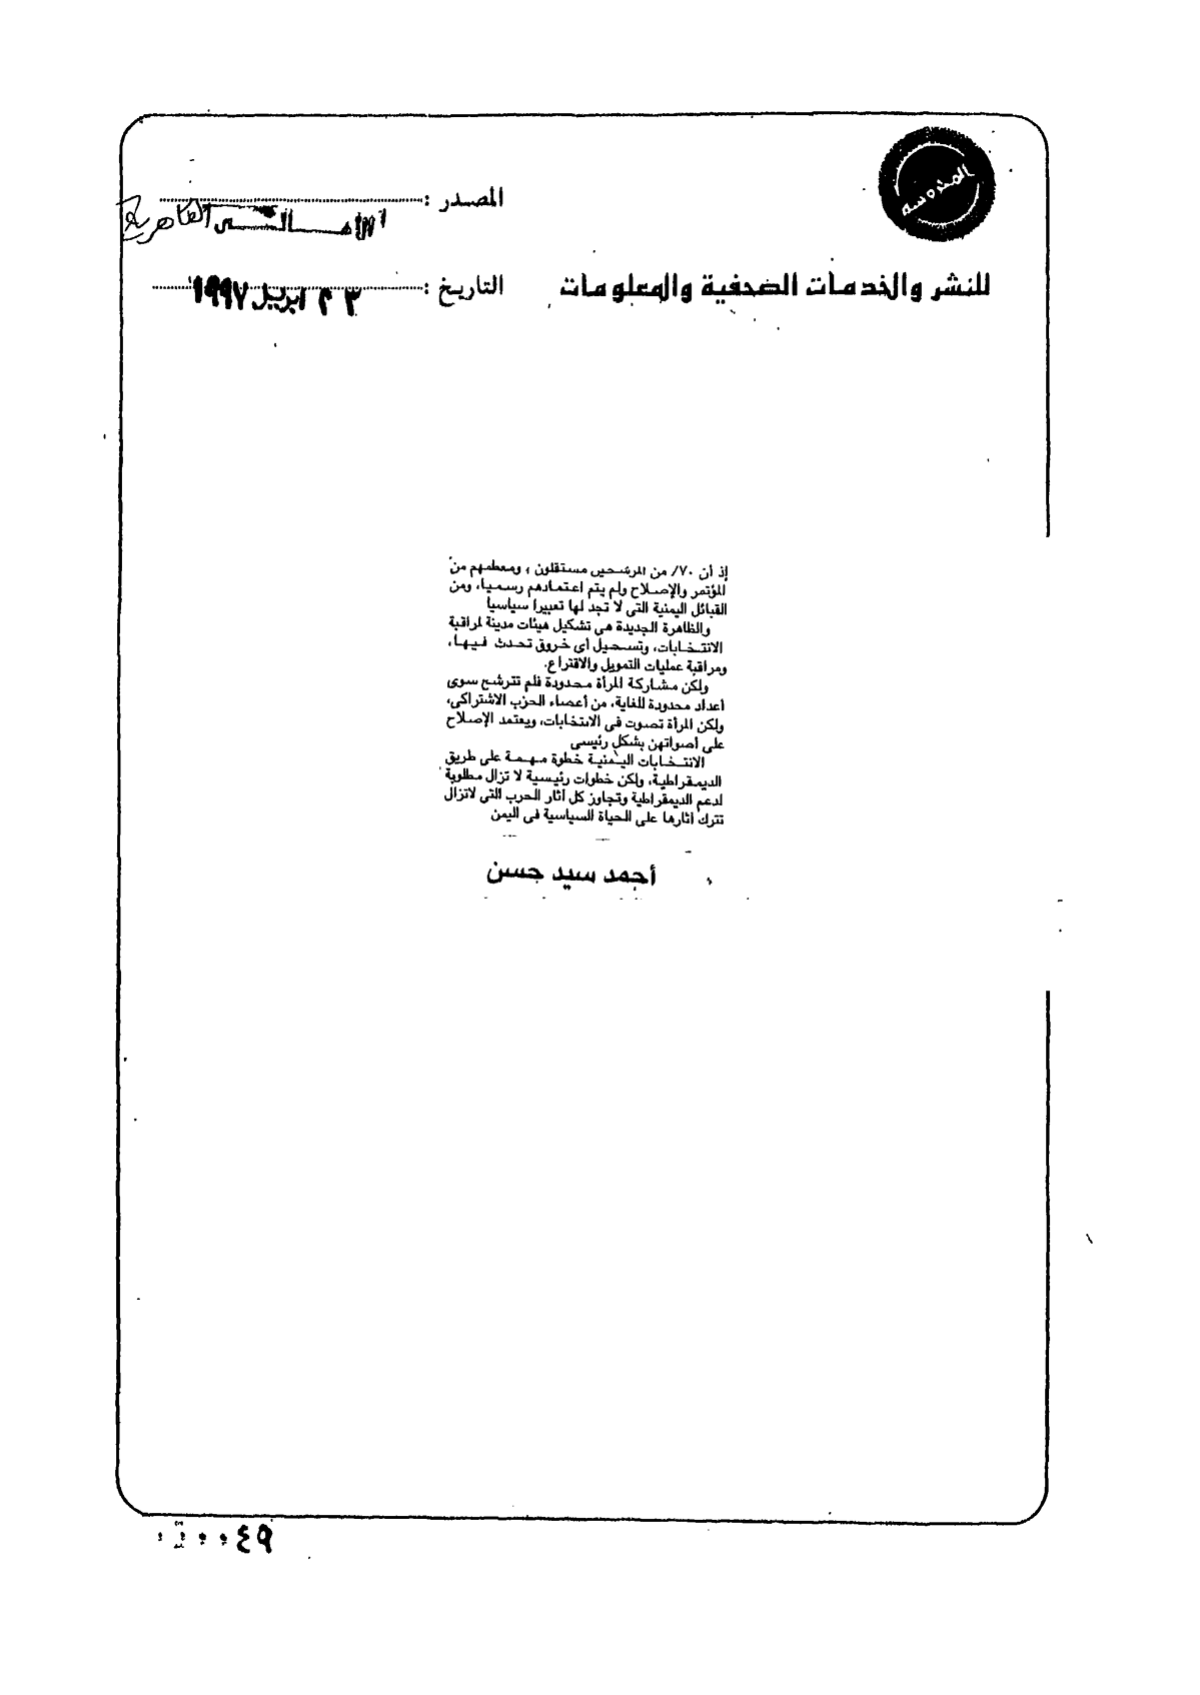 المحروسة
المصدر :
الأهالى القاهرية
للنشر والخدمات الصحفية والمعلومات
التاريخ : ٢٣ ابريل ١٩٩٧
إذ أن ٧٠/ من المرشحين مستقلون ، ومعظمهم من
المؤتمر والإصلاح ولم يتم اعتمادهم رسميا، ومن
القبائل اليمنية التى لا تجد لها تعبيرا سياسيا
والظاهرة الجديدة هى تشكيل هيئات مدينة لمراقبة
الانتخابات، وتسجيل أى خروق تحدث فيها،
ومراقبة عمليات التمويل والاقتراع.
ولكن مشاركة المرأة محدودة فلم تترشح سوى
أعداد محدودة للغاية، من أعضاء الحزب الاشتراكى،
ولكن المرأة تصوت فى الانتخابات، ويعتمد الإصلاح
على أصواتهن بشكل رئيسى
الانتخابات اليمنية خطوة مهمة على طريق
الديمقراطية، ولكن خطوات رئيسية لا تزال مطلوبة
لدعم الديمقراطية وتجاوز كل آثار الحرب التى لاتزال
تترك آثارها على الحياة السياسية فى اليمن
أحمد سيد حسن
٤٩